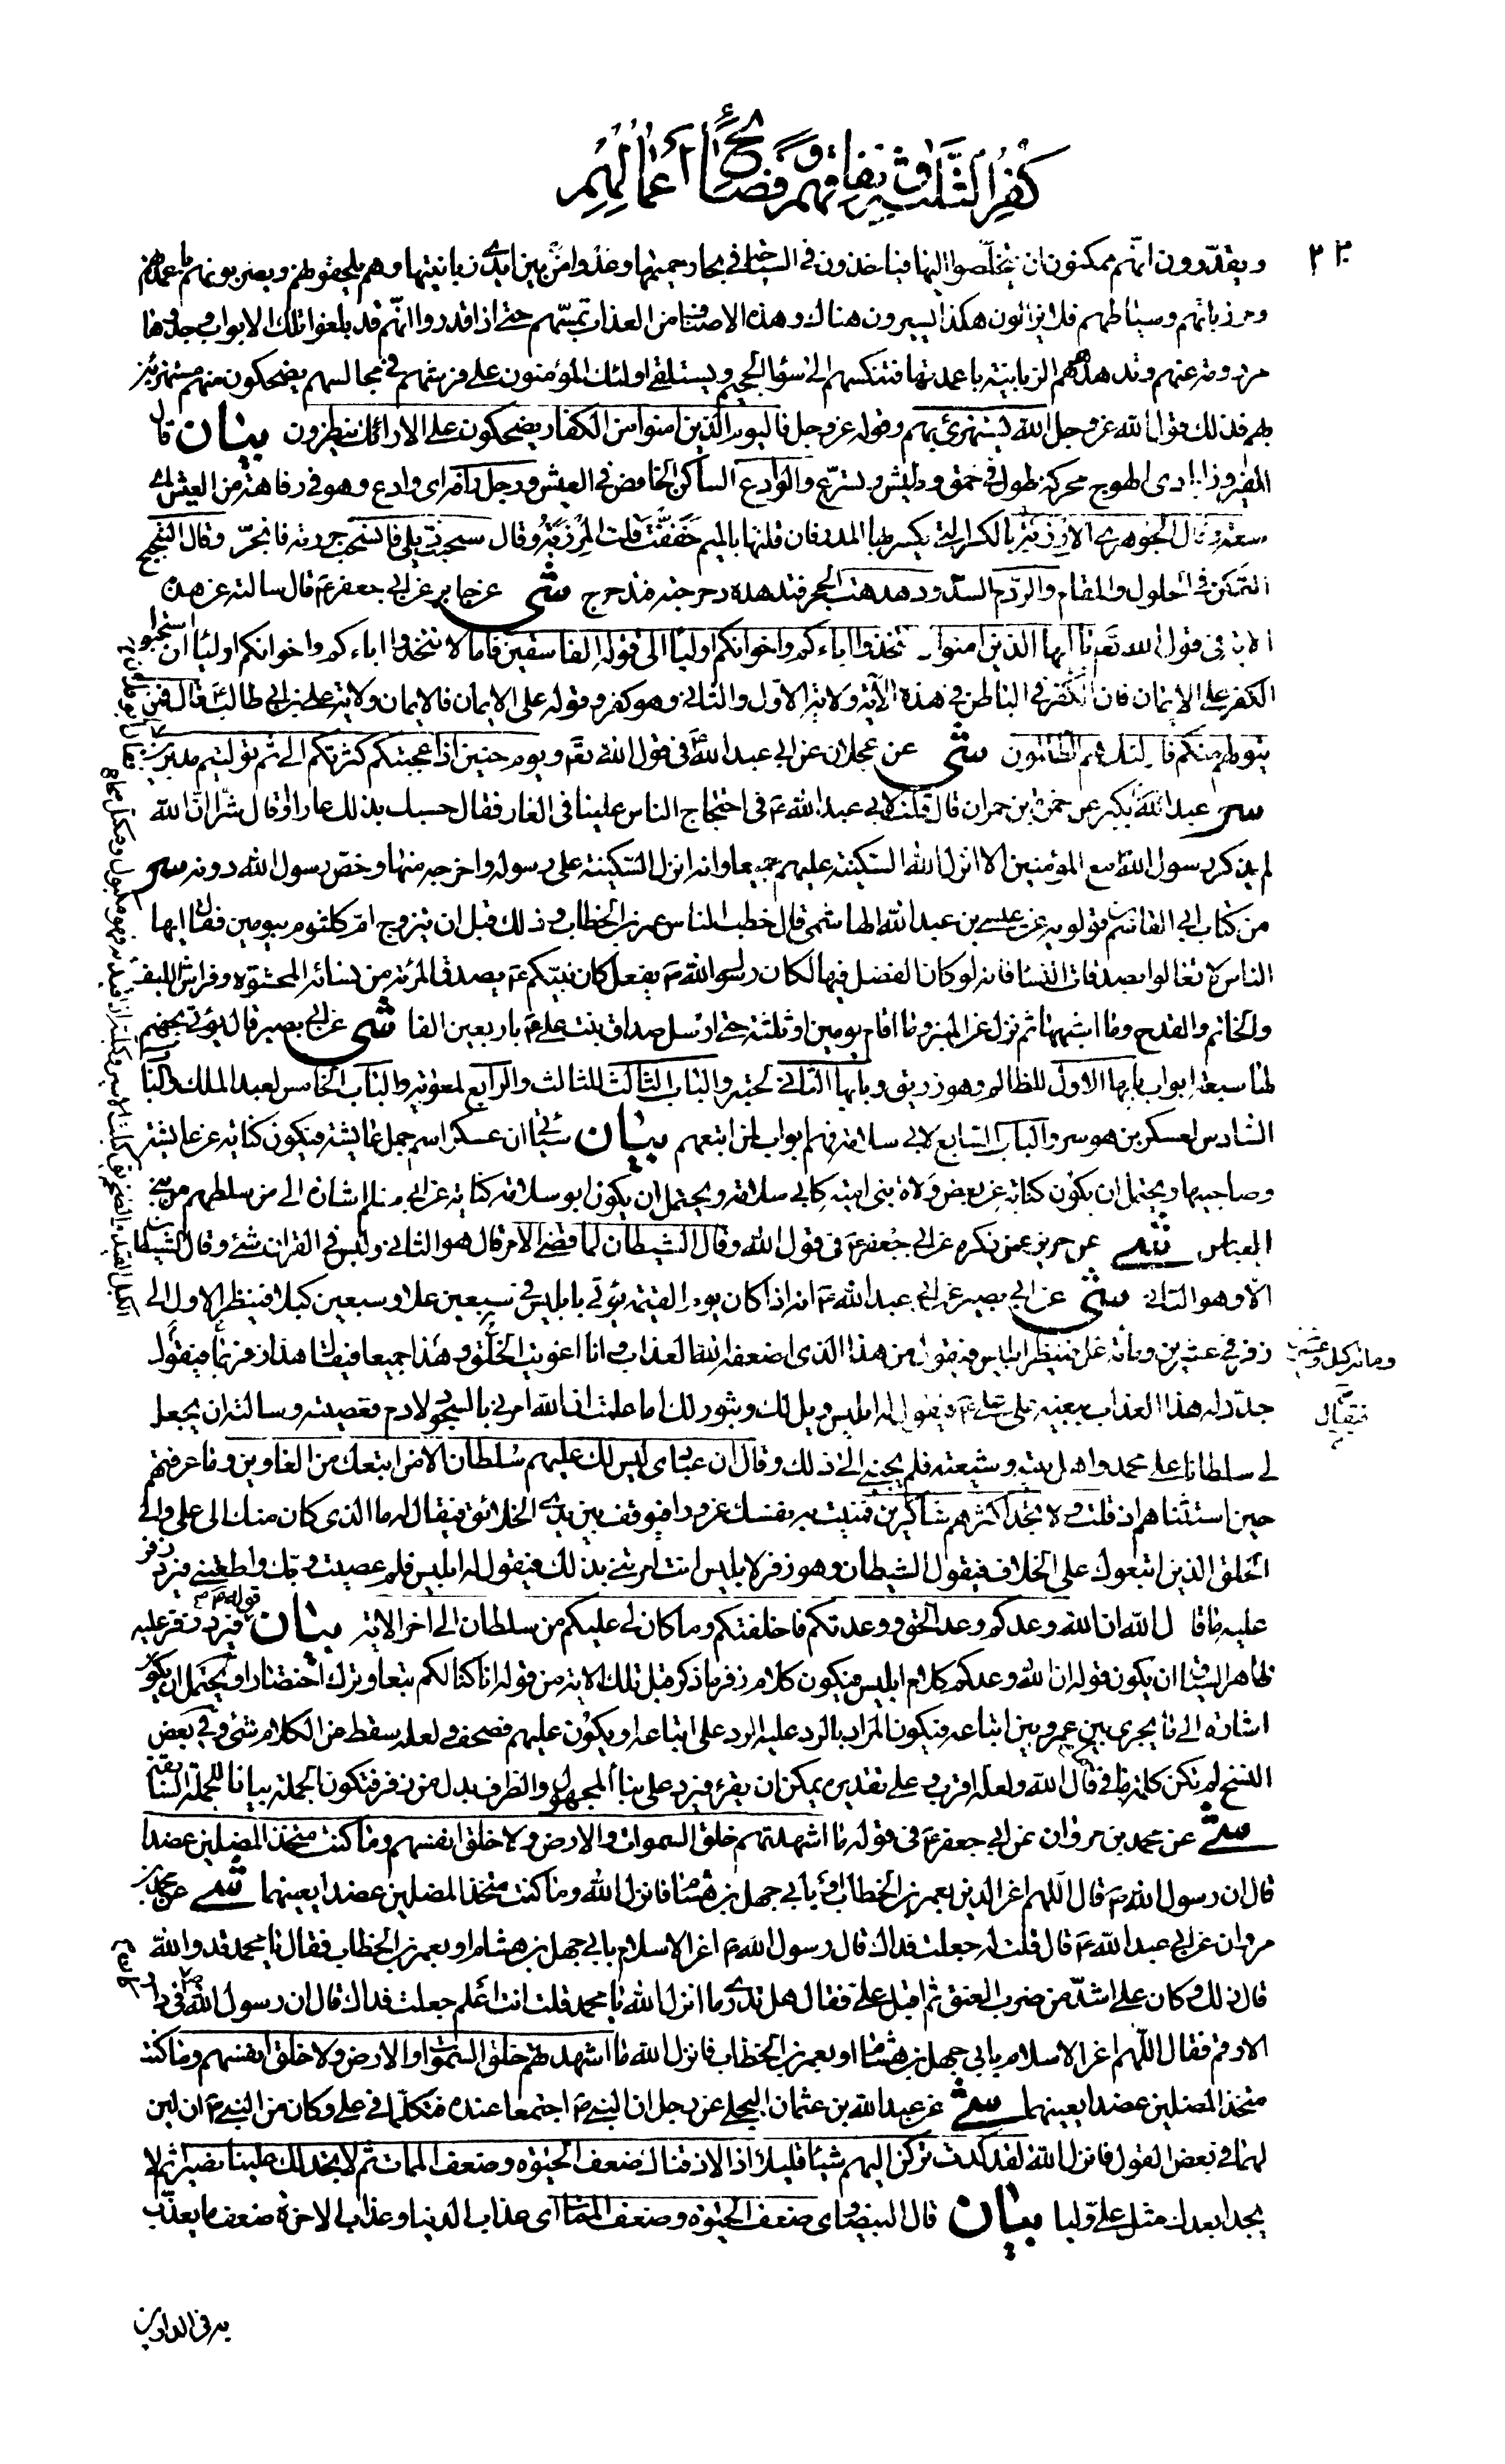 كفر الثلاثة ونفاقهم وفضائح أعمالهم
ويقدّرون انّهم ممكنون ان يتخلّصوا اليها فياخذون في السباحة في بحار حميمها وعدوا من بين ايدي زبانيتها وهم يلحقونهم ويضربونهم باعمدتهم
ومرزباتهم وسياطهم فلا يزالون هكذا يسيرون هناك وهذه الاصناف من العذاب تمسّهم حتى اذا قدروا انّهم قد بلغوا تلك الابواب وجدوها
مردومة عنهم وتدهدههم الزبانية باعمدتها فتنكسهم الى سواء الجحيم ويستلقي اولئك المؤمنون على فرشهم في مجالسهم يضحكون منهم مستهزئين
بهم فذلك قول الله عز وجل الله يستهزئ بهم وقوله عز وجل فاليوم الذين امنوا من الكفار يضحكون على الارائك ينظرون بيان قال
الفيروزابادي الهوج محركة طول في حمق وطيش وتسرّع والوادع الساكن الخافض في العيش ورجل رافه اي وادع وهو في رفاهة من العيش اي
سعة وقال الجوهري الارزبّة بالكسر التي يكسر بها المدر فان قلتها بالميم خففت قلت المرزبة وقال سحبت ذيلي فانسحب جررته فانجرّ وقال التبحبح
التمكن في الحلول والمقام والردم السدّ ودهدهت الحجر فتدهده دحرجته فتدحرج شى عن جابر عن ابي جعفر ع قال سالته عن هذه
الاية في قول الله تعالى يا ايها الذين امنوا لا تتخذوا اباءكم واخوانكم اولياء الى قوله الفاسقين فاما لا تتخذوا اباءكم واخوانكم اولياء ان استحبوا
الكفر على الايمان فان الكفر في الباطن في هذه الآية ولاية الاوّل والثاني وهو كفر وقوله على الايمان فالايمان ولاية علي بن ابي طالب ع قال فمن
يتولهم منكم فاولئك هم الظالمون شى عن عجلان عن ابي عبد الله ع في قول الله تع ويوم حنين اذ اعجبتكم كثرتكم الى ثم توليتم مدبرين فقال
سر عبد الله بن بكير عن حمزة بن حمران قال قلت لابي عبد الله ع في احتجاج الناس علينا في الغار فقال حسبك بذلك عارا او قال شرّا ان الله
لم يذكر رسول الله مع المؤمنين الا انزل الله السكينة عليهم جميعا وانه انزل السكينة على رسوله واخرجه منها وخصّ رسول الله دونه سر
من كتاب ابي القاسم بن قولويه عن عيسى بن عبد الله الهاشمي قال خطب الناس عمر بن الخطاب وذلك قبل ان يتزوج امّ كلثوم بيومين فقال ايها
الناس لا تغالوا بصدقات النساء فانه لو كان الفضل فيها لكان رسول الله ص يفعل كان نبيكم ع يصدق المرئة من نسائه المحشوة وفراش الليف
والخاتم والقدح وما اشبهها ثم نزل عن المنبر وما اقام يومين او ثلثة حتى ارسل صداق بنت علي ع باربعين الفا شى عن ابي بصير قال يؤتى بجهنم
لها سبعة ابواب بابها الاول للظالم وهو زريق وبابها الثاني لحبتر والباب الثالث للثالث والرابع لمعوية والباب الخامس لعبد الملك والباب
السادس لعسكر بن هوسر والباب السابع لابي سلامة فهم ابواب لمن اتبعهم بيان سياتي ان عسكر اسم جمل عايشة فيكون كناية عن عايشة
وصاحبيها ويحتمل ان يكون كناية عن بعض ولاة بني امية كابي سلامة ويحتمل ان يكون ابو سلامة كناية عن ابي مسلم اشارة الى من سلطهم من بني
العباس شى عن حريز عمن ذكره عن ابي جعفر ع في قول الله وقال الشيطان لما قضي الامر قال هو الثاني وليس في القران شئ وقال الشيطان
الا وهو الثاني شى عن ابي بصير عن ابي عبد الله ع انه اذا كان يوم القيمة يؤتى بابليس في سبعين غلا وسبعين كبلا فينظر الاول الى
زفر في عشرين ومائة غل فينظر ابليس فيقول من هذا الذي اضعفه الله العذاب وانا اغويت الخلق وهذا جميعا فيقال هذا زفر بما فيقول
وماة كبل وعشرين
جدّد له هذا العذاب ببغيه على علي ع فيقول له ابليس ويل لك وثبور لك اما علمت ان الله امرني بالسجود لادم فعصيته وسالته ان يجعل
فيقال
لي سلطانا على محمد واهل بيته وشيعته فلم يجبني الى ذلك وقال ان عبادي ليس لك عليهم سلطان الا من اتبعك من الغاوين وما عرفتهم
حين استثناهم اذ قلت ولا تجد اكثرهم شاكرين فمنيت به نفسك غرورا فيوقف بين يدي الخلائق فيقال له ما الذي كان منك الى علي والى
الخلق الذين اتبعوك على الخلاف فيقول الشيطان وهو زفر لابليس انت امرتني بذلك فيقول له ابليس فلم عصيت ربك واطعتني فيرد زفر
عليه ما قال الله ان الله وعدكم وعد الحق ووعدتكم فاخلفتكم وما كان لي عليكم من سلطان الى اخر الاية بيان قوله ع فيرد زفر عليه
ظاهر السياق ان يكون قوله ان الله وعدكم كلام ابليس فيكون كلام زفر ما ذكر قبل تلك الاية من قوله انا كنا لكم تبعا وترك اختصارا ويحتمل ان يكون
اشارة الى ما يجري بين عمر وبين اتباعه فيكون المراد بالرد عليه الرد على اتباعه او يكون عليهم فصحف ولعله سقط من الكلام شئ وفي بعض
النسخ لم تكن كلمة ما في قال الله ولعله اقرب وعلى تقديره يمكن ان يقرء فيرد على بناء المجهول والظرف بدل من زفر فتكون الجملة بيانا للجملة السابقة
شى عن محمد بن مروان عن ابي جعفر ع في قوله ما اشهدتهم خلق السموات والارض ولا خلق انفسهم وما كنت متخذ المضلين عضدا
قال ان رسول الله ص قال اللهم اعز الدين بعمر بن الخطاب او بابي جهل بن هشام فانزل الله وما كنت متخذ المضلين عضدا يعنيهما شى عن محمد بن
مروان عن ابي عبد الله ع قال قلت له جعلت فداك قال رسول الله ص اعز الاسلام بابي جهل بن هشام او بعمر بن الخطاب فقال يا محمد قد والله
قال ذلك وكان علي اشدّ من ضرب العنق ثم اقبل علي فقال هل تدري ما انزل الله يا محمد قلت انت اعلم جعلت فداك قال ان رسول الله ص كان في دار
الارقم فقال اللهم اعز الاسلام بابي جهل بن هشام او بعمر بن الخطاب فانزل الله ما اشهدتهم خلق السموات والارض ولا خلق انفسهم وما كنت
متخذ المضلين عضدا يعنيهما شى عن عبد الله بن عثمان البجلي عن رجل ان النبي ص اجتمعا عنده فتكلما في علي وكان من النبي ص ان لين
لهما في بعض القول فانزل الله لقد كدت تركن اليهم شيئا قليلا اذا لاذقناك ضعف الحيوة وضعف الممات ثم لا تجد لك علينا نصيرا ثم لا
يجد بعدك مثل علي وليا بيان قال البيضاوي اي ضعف الحيوة وضعف الممات اي عذاب الدنيا وعذاب الاخرة ضعف ما يعذّب
به في الدارين